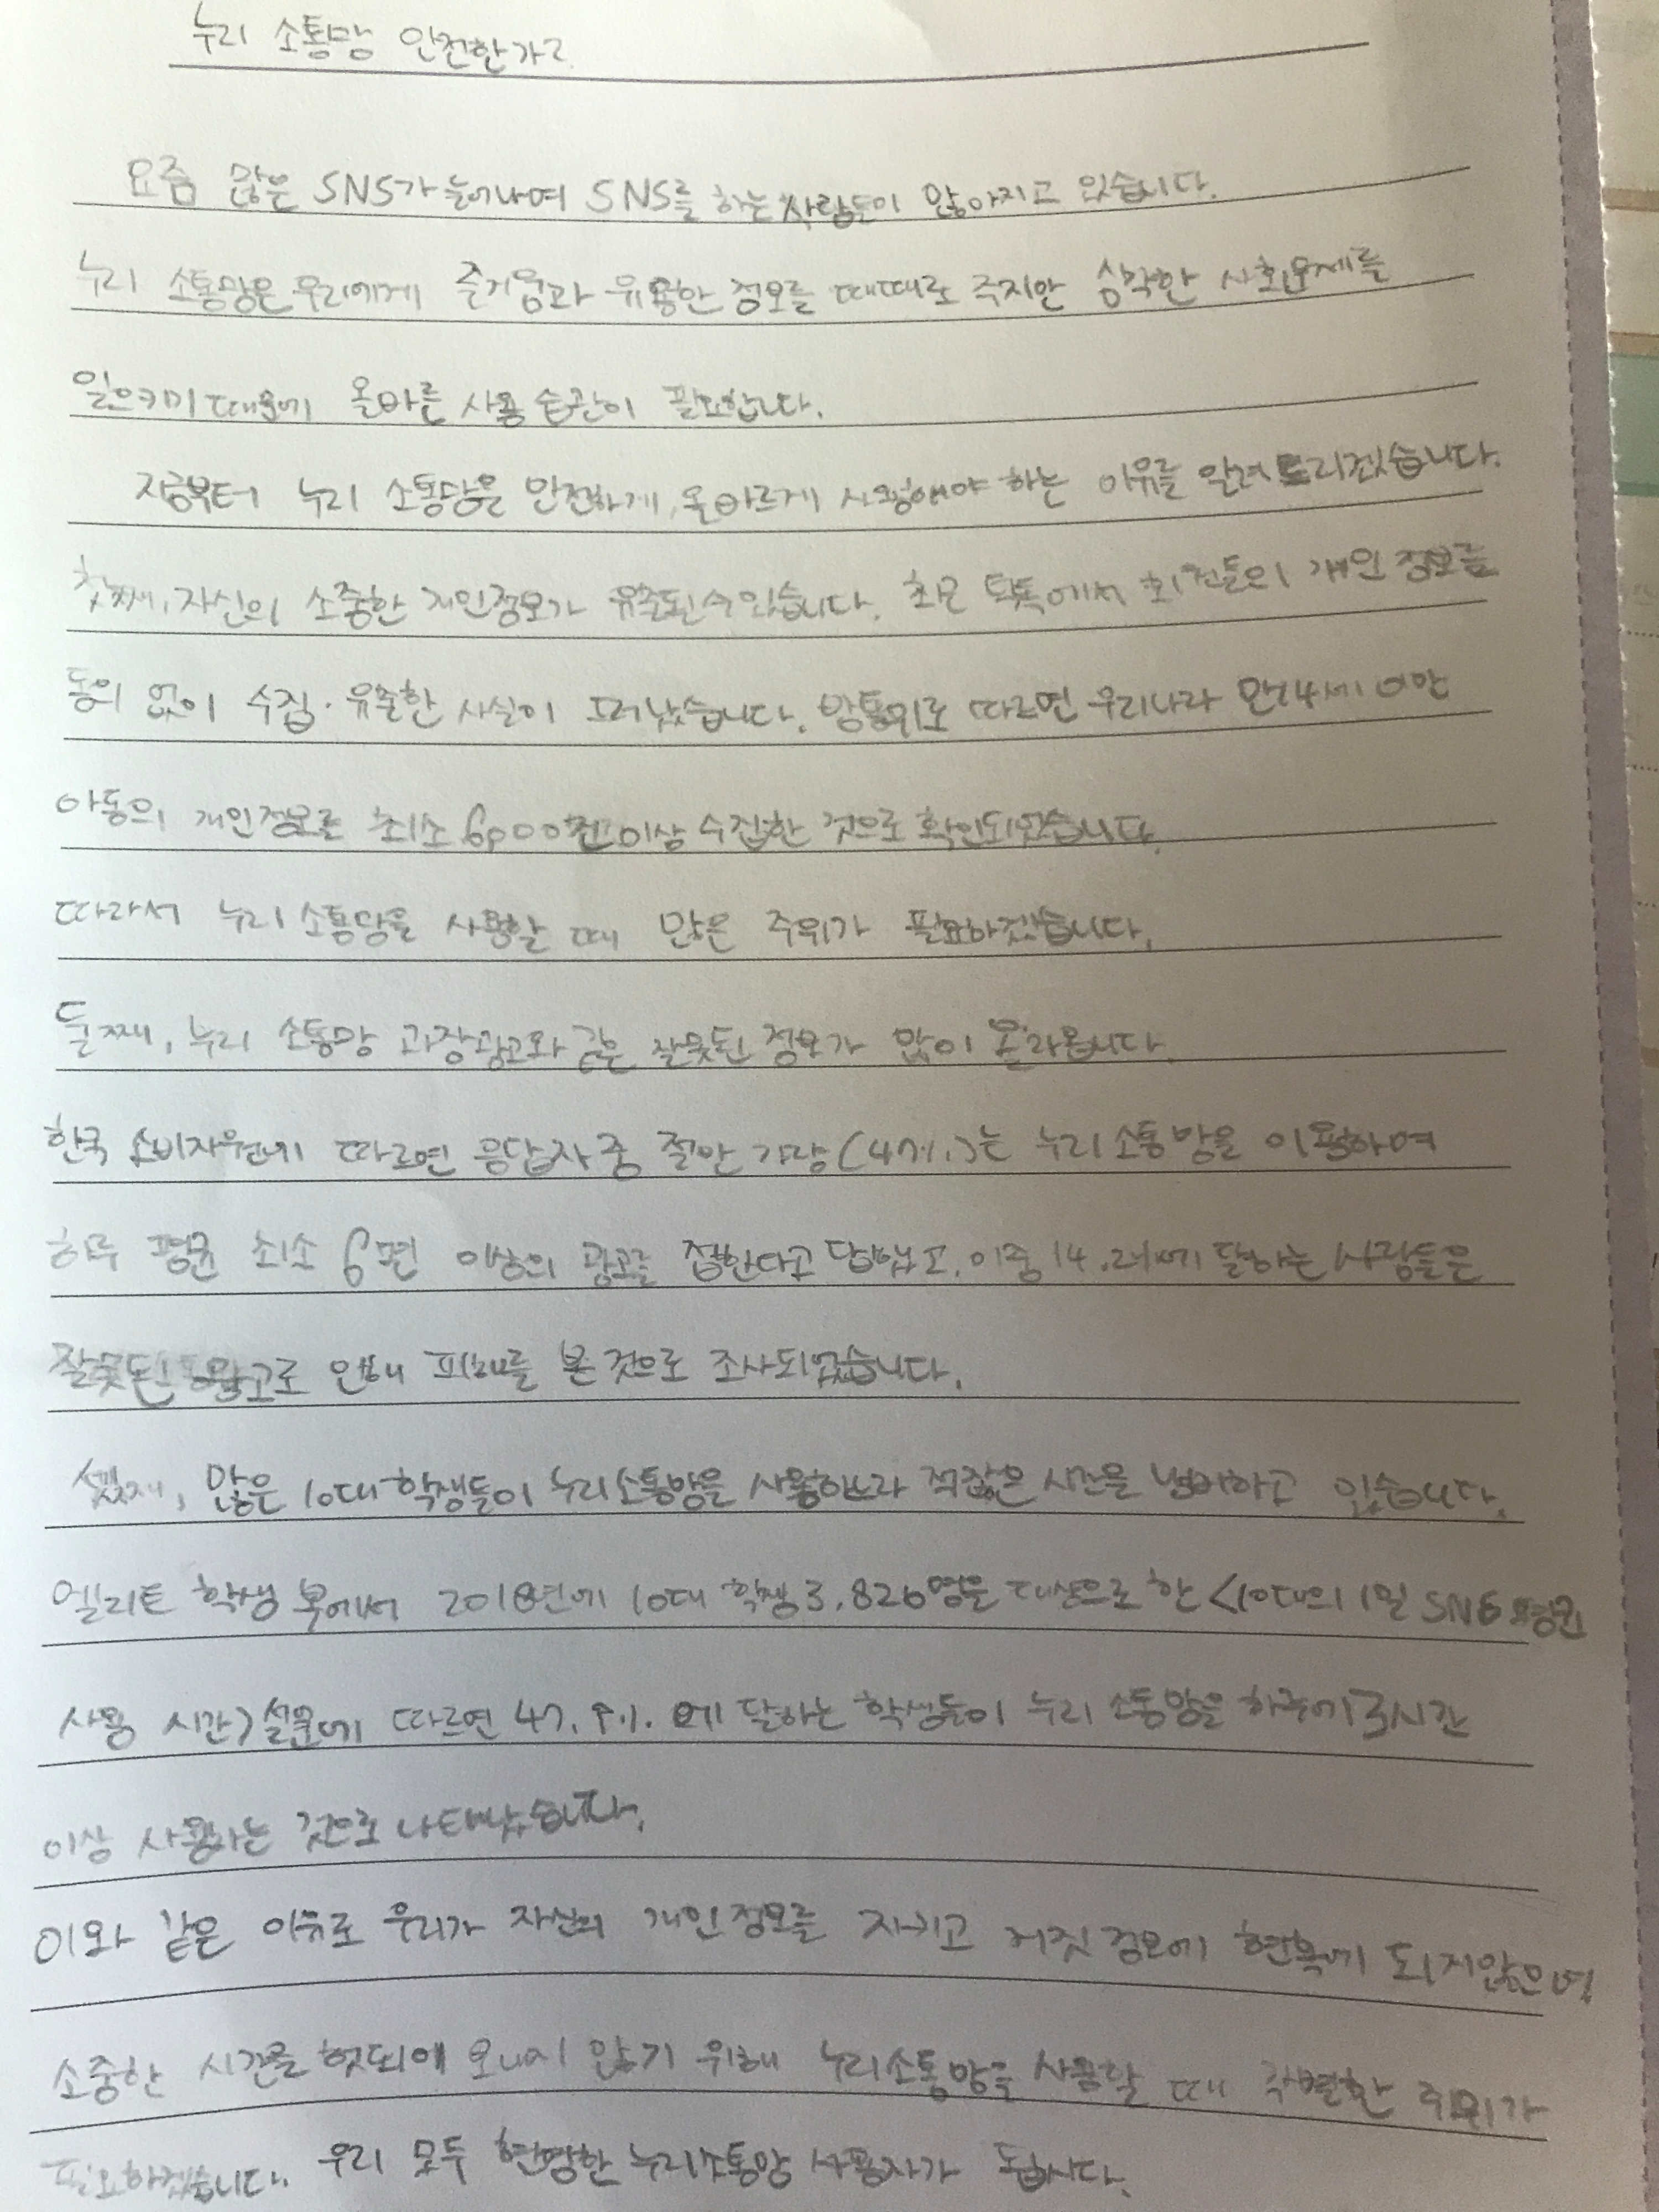 누리 소통망 안전한가?
요즘 많은 SNS가 늘어나며 SNS를 하는 사람들이 많아지고 있습니다.
누리 소통망은 우리에게 즐거움과 유용한 정보를 때때로 주지만 심각한 사회문제를
일으키기 때문에 올바른 사용 습관이 필요합니다.
지금부터 누리 소통망을 안전하게, 올바르게 사용해야 하는 이유를 알려 드리겠습니다.
첫째, 자신의 소중한 개인정보가 유출될 수 있습니다. 최근 틱톡에서 회원들의 개인 정보를
동의 없이 수집·유출한 사실이 드러났습니다. 방통위로 따르면 우리나라 만14세 미만
아동의 개인정보를 최소 6,000건 이상 수집한 것으로 확인되었습니다.
따라서 누리 소통망을 사용할 때 많은 주위가 필요하겠습니다.
둘째, 누리 소통망 과장광고와 같은 잘못된 정보가 많이 올라옵니다.
한국 소비자원에 따르면 응답자 중 절반 가량(47%)는 누리 소통망을 이용하여
하루 평균 최소 6편 이상의 광고를 접한다고 답했고, 이중 14.2%에 달하는 사람들은
잘못된 광고로 인해 피해를 본 것으로 조사되었습니다.
셋째, 많은 10대 학생들이 누리소통망을 사용하느라 적잖은 시간을 낭비하고 있습니다.
엘리트 학생복에서 2018년에 10대 학생 3,826명을 대상으로 한 <10대의 1일 SNS 평균
사용 시간>설문에 따르면 47.9%에 달하는 학생들이 누리 소통망을 하루에 3시간
이상 사용하는 것으로 나타났습니다.
이와 같은 이유로 우리가 자신의 개인 정보를 지키고 거짓 정보에 현혹에 되지않으며
소중한 시간을 헛되이 보내지 않기 위해 누리소통망을 사용할 때 각별한 주위가
필요하겠습니다. 우리 모두 현명한 누리소통망 사용자가 됩시다.